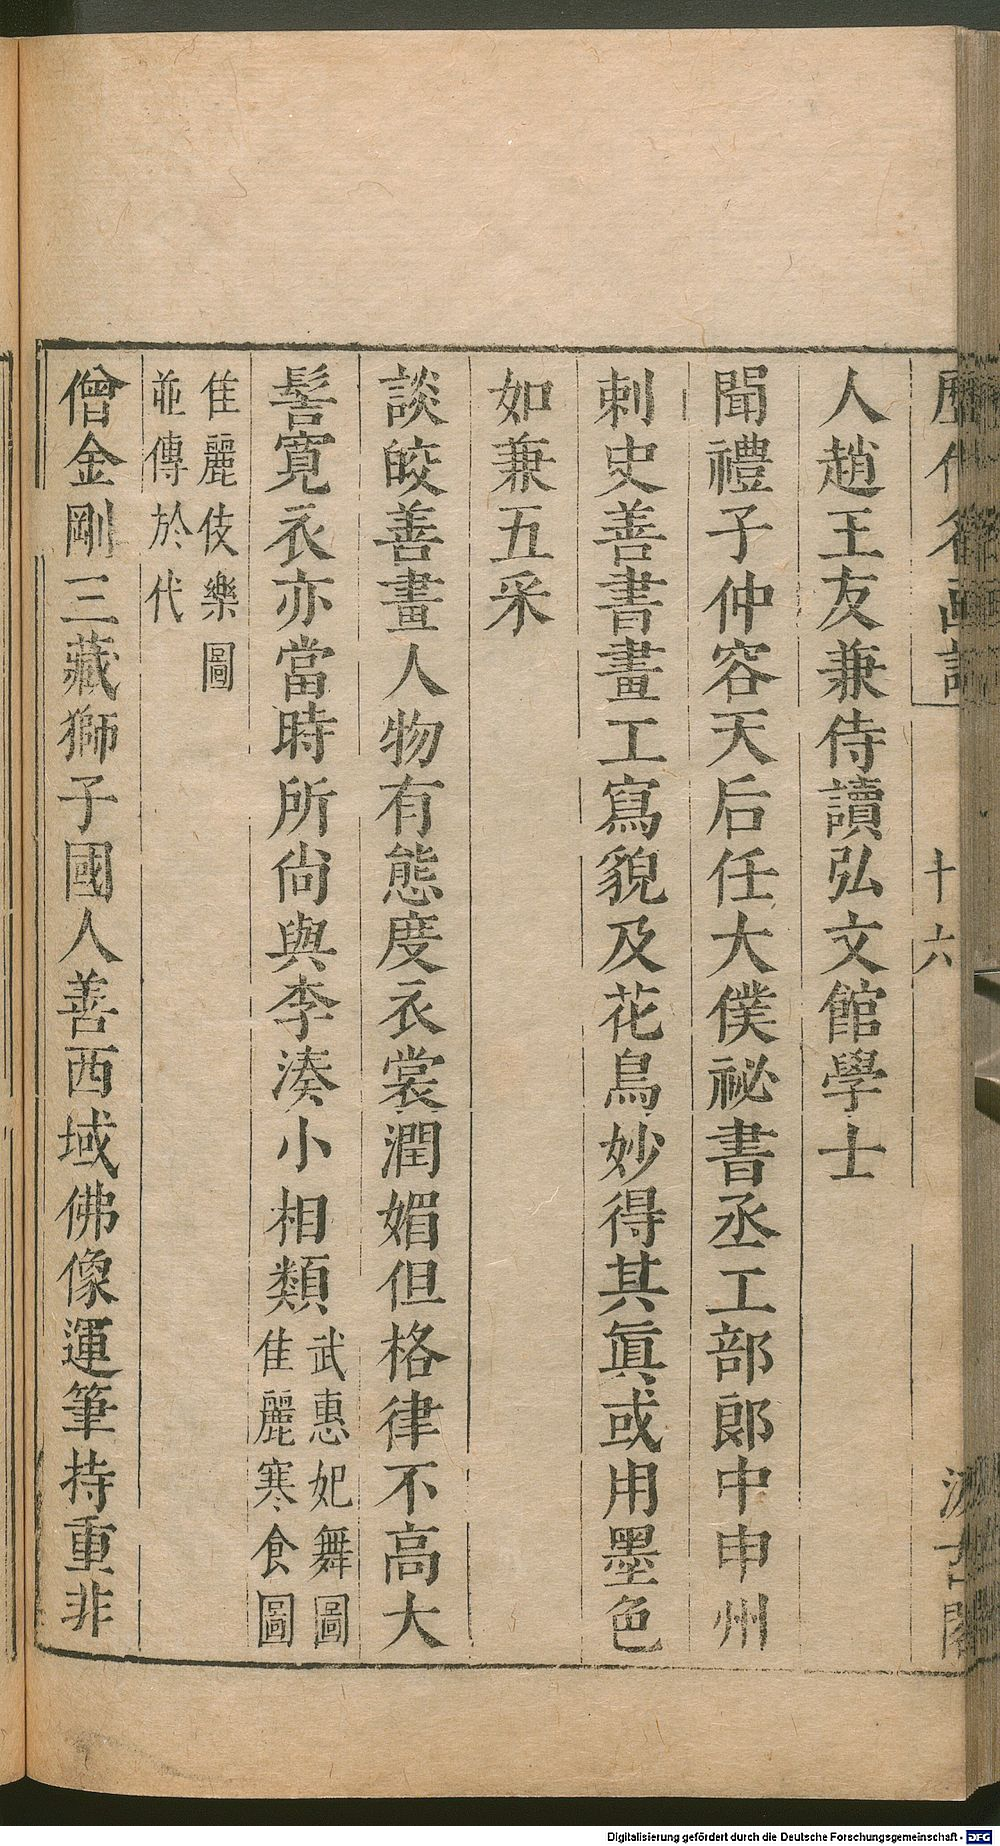 歷代名畫記
十六
汲古閣
人趙王友兼侍讀弘文館學士
聞禮子仲容天后任大僕祕書丞工部郎中申州
刺史善書畫工寫貌及花鳥妙得其眞或用墨色
如兼五采
談皎善畫人物有態度衣裳潤媚但格律不高大
髻寬衣亦當時所尙與李湊小相類武惠妃舞圖
佳麗寒食圖
佳麗伎樂圖
並傳於代
僧金剛三藏獅子國人善西域佛像運筆持重非
Digitalisierung gefördert durch die Deutsche Forschungsgemeinschaft - DFG